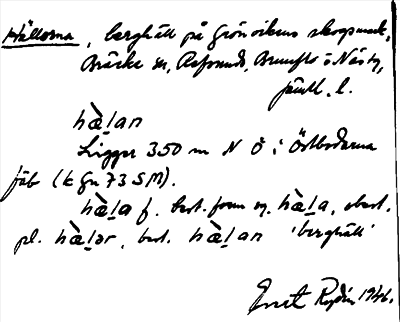 Hällorna, berghäll på Grönvikens skogsmark,
Bräcke sn, Refsunds, Brunflo o Näs tg,
Jämtl. l.
hæ̀l̲an
Ligger 350 m N Ö i Östbodarna
fäb (k Gn 73 SM).
hæ̀l̲a f. best. form sg. hæ̀l̲a, obest.
pl. hæ̀l̲ər, best. hæ̀l̲an 'berghäll'
Rydén 1946.